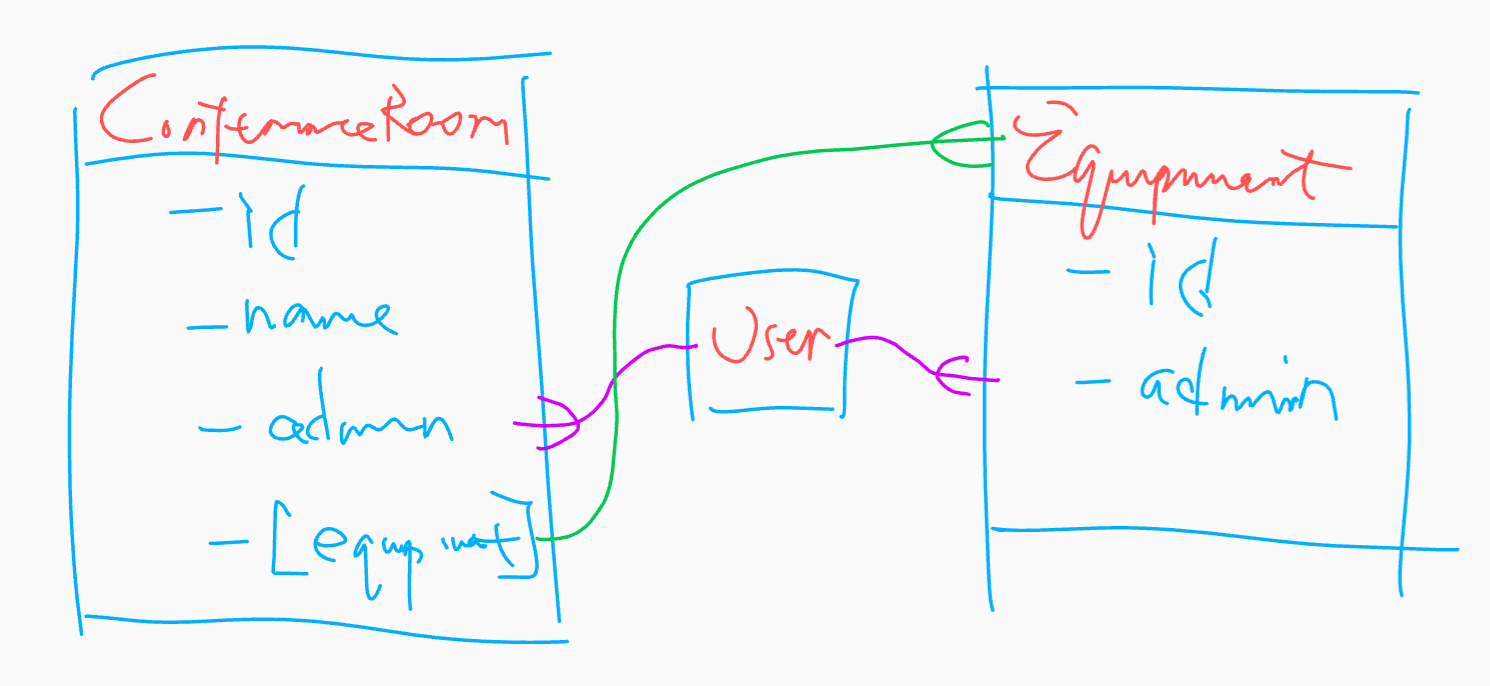 ConferenceRoom
- id
- name
- admin
- [equipment]
User
Equipment
- id
- admin